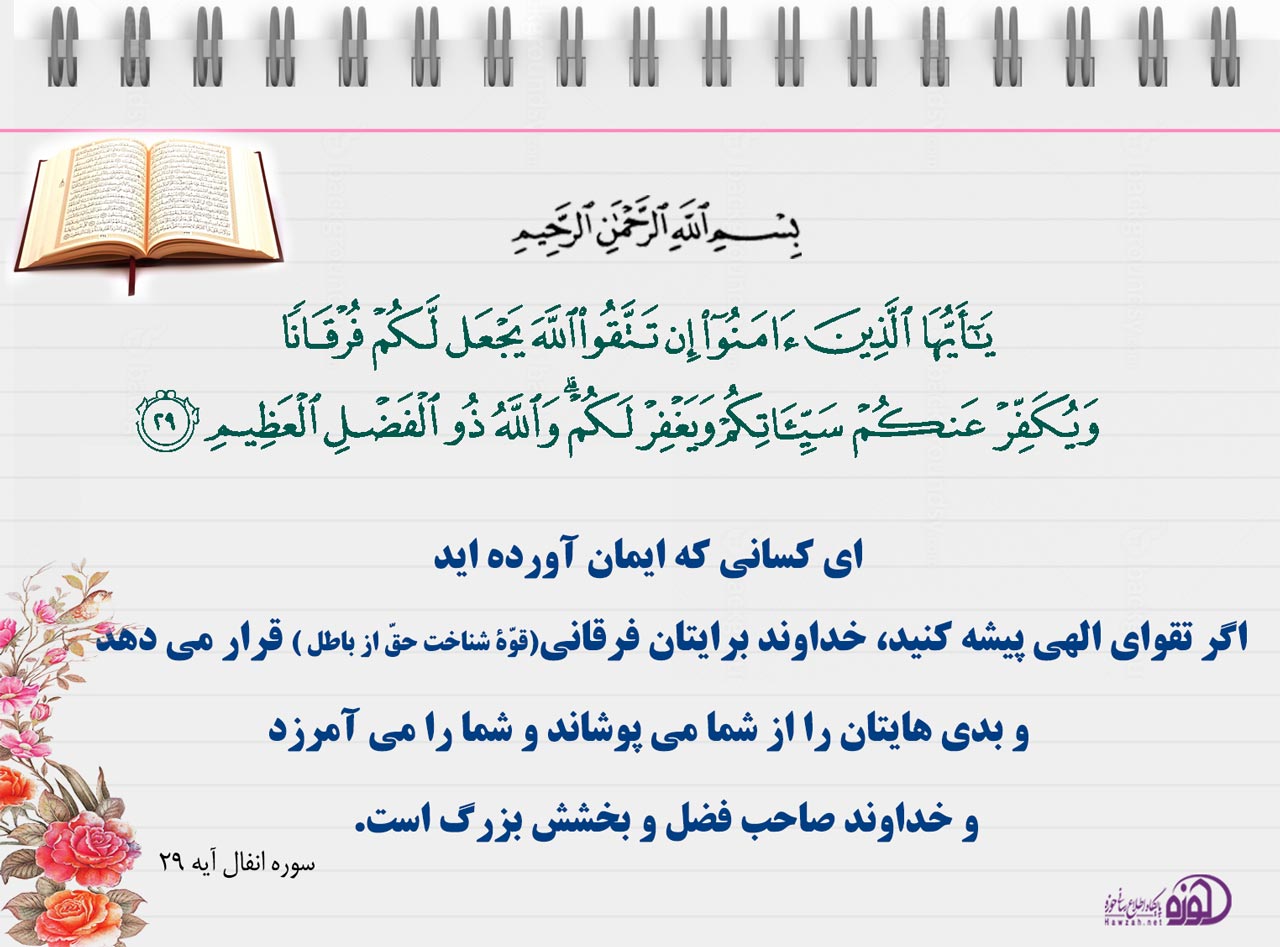 بِسْمِ ٱللَّهِ ٱلرَّحْمَٰنِ ٱلرَّحِيمِ
يَٰٓأَيُّهَا ٱلَّذِينَ ءَامَنُوٓا۟ إِن تَتَّقُوا۟ ٱللَّهَ يَجْعَل لَّكُمْ فُرْقَانًا
وَيُكَفِّرْ عَنكُمْ سَيِّـَٔاتِكُمْ وَيَغْفِرْ لَكُمْ ۗ وَٱللَّهُ ذُو ٱلْفَضْلِ ٱلْعَظِيمِ ٢٩
ای کسانی که ایمان آورده اید
اگر تقوای الهی پیشه کنید، خداوند برایتان فرقانی(قوّۀ شناخت حقّ از باطل ) قرار می دهد
و بدی هایتان را از شما می پوشاند و شما را می آمرزد
و خداوند صاحب فضل و بخشش بزرگ است.
سوره انفال آیه ۲۹
حوزه پایگاه اطلاع رسانی حوزه
Hawzah.net